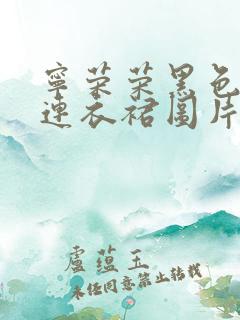 寧荣荣黑色
連衣裙圖片
盧蕴玉
未经同意禁止转载